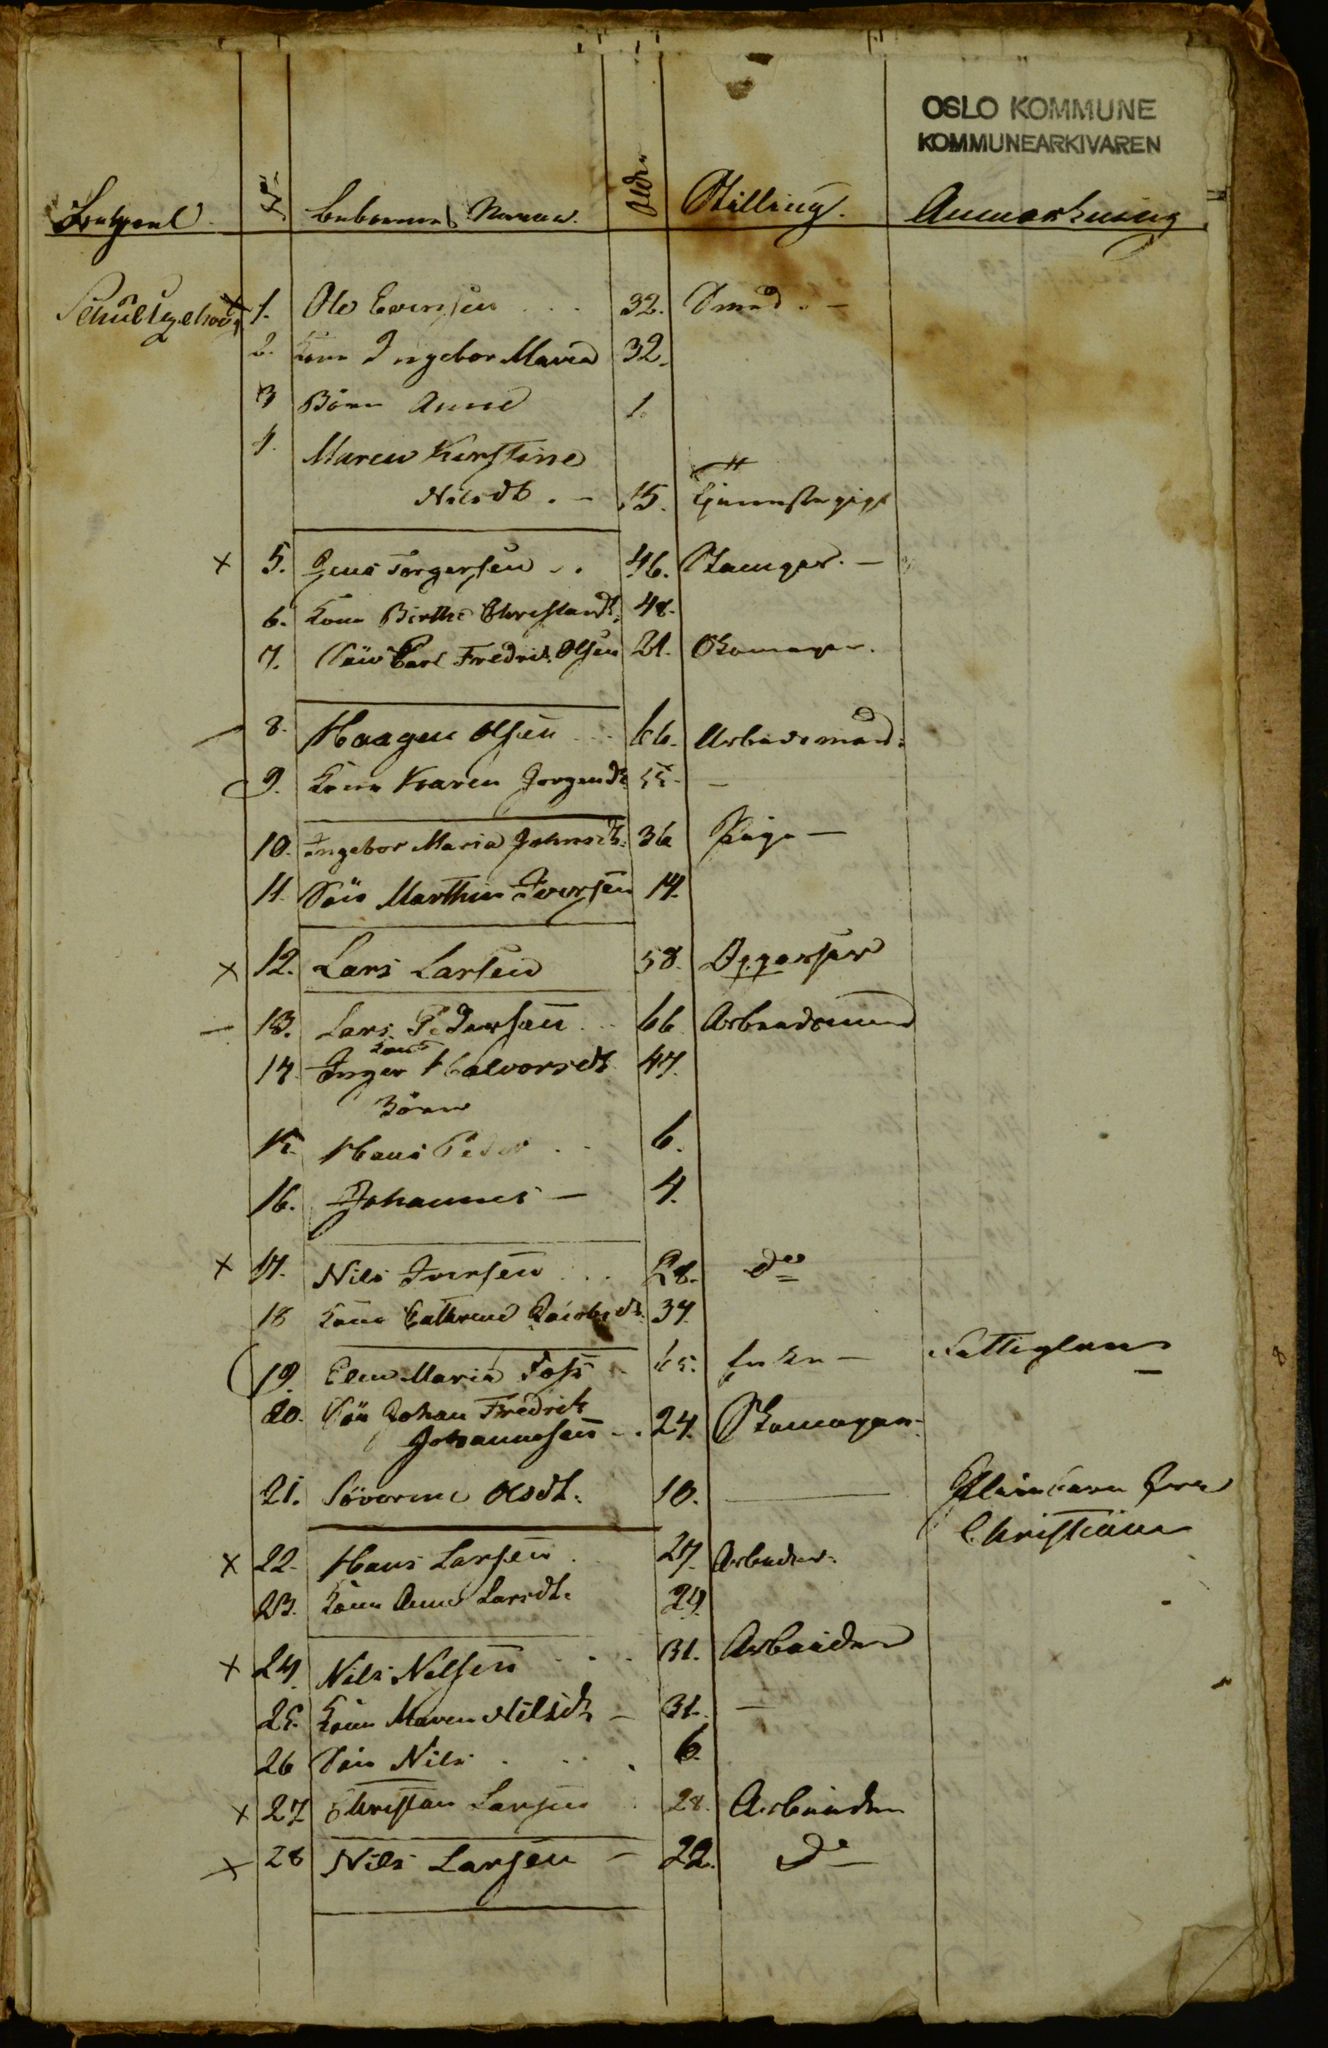 OSLO KOMMUNE
KOMMUNEARKIVAREN
No Navne. Alder Stilling. Anmærkning
1. Ole Evensen 32. Smed. -
2. Kone Ingebor Maria 32.
3 Börn Anne 1.
4. Maren Kirstine
Nilsdt. - 15. Tjenestepige
x 5. Jens Torgersen .. 46. Skomager. -
6. Kone Birthe Christiansdt. 48.
7. Sön Carl Fredrik Olsen 21. Skomager.
8. Haagen Olsen 66. Arbeidsmand.
9. Kone Karen Jorgensdt 55. -
10. Ingebor Maria Johnsdt. 36 Pige -
11. Sön Marthin Iversen 14.
x 12. Lars Larsen 58.
- 13. Lars Pedersen .. 66 Arbeidsmand
Kone
14. Inger Halvorsdt 47.
Börn
15. Hans Peder .. 6.
16. Johannes - 4.
x 17. Nils Iversen ... 28. do
18 Kone Cathrine Jacobsdt. 34.
19. Elen Maria Foss 65. Enke -
20. Sön Johan Fredrik
Johannesen - . 24. Skomager.
21. Söverine Olsdt. 10. - Pleiebarn fra
Christiania
x 22. Hans Larsen . 27. Arbeider.
23. Kone Anne Larsdt. 29.
x 24. Nils Nilsen ... 31. Arbeider
25. Kone Maren Nilsdt - 31. -
26 Sön Nils ... 6.
x 27 Christian Larsen . 28. Arbeider
x 28 Nils Larsen - 22. do